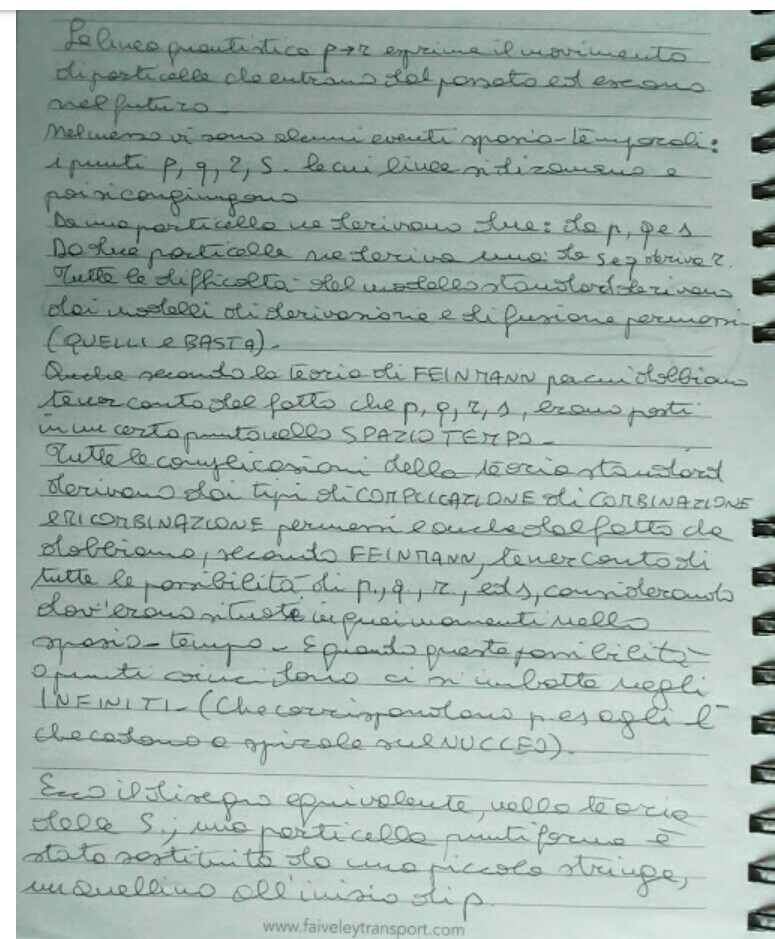 La linea quantistica p→r esprime il movimento
di particelle che entrano dal passato ed escono
nel futuro.
Nel mezzo vi sono alcuni eventi spazio-temporali:
i punti p, q, r, s. le cui linee si diramano e
poi si congiungono
Da una particella ne derivano due: da p, q e s
Da due particelle ne deriva una: da s e q deriva r.
Tutte le difficoltà del modello standard derivano
dai modelli di derivazione e di fusione permessi
(QUELLI e BASTA).
Anche secondo la teoria di FEINMANN per cui dobbiamo
tener conto del fatto che p, q, r, s, erano posti
in un certo punto nello SPAZIO TEMPO-
Tutte le complicazioni della teoria standard
derivano dai tipi di COMPLICAZIONE di COMBINAZIONE
e RICOMBINAZIONE permessi e anche dal fatto che
dobbiamo, secondo FEINMANN, tener conto di
tutte le possibilità di p., q., r., ed s, considerando
dov'erano situate in quei momenti nello
spazio-tempo- E quando queste possibilità
o punti coincidono ci si imbatte negli
INFINITI-(Che corrispondono p. es agli e⁻
che cadono a spirale sul NUCLEO).
Ecco il disegno equivalente, nella teoria
delle S.; una particella puntiforme è
stata sostituita da una piccola stringa,
un anellino all'inizio di p.
www.faiveleytransport.com